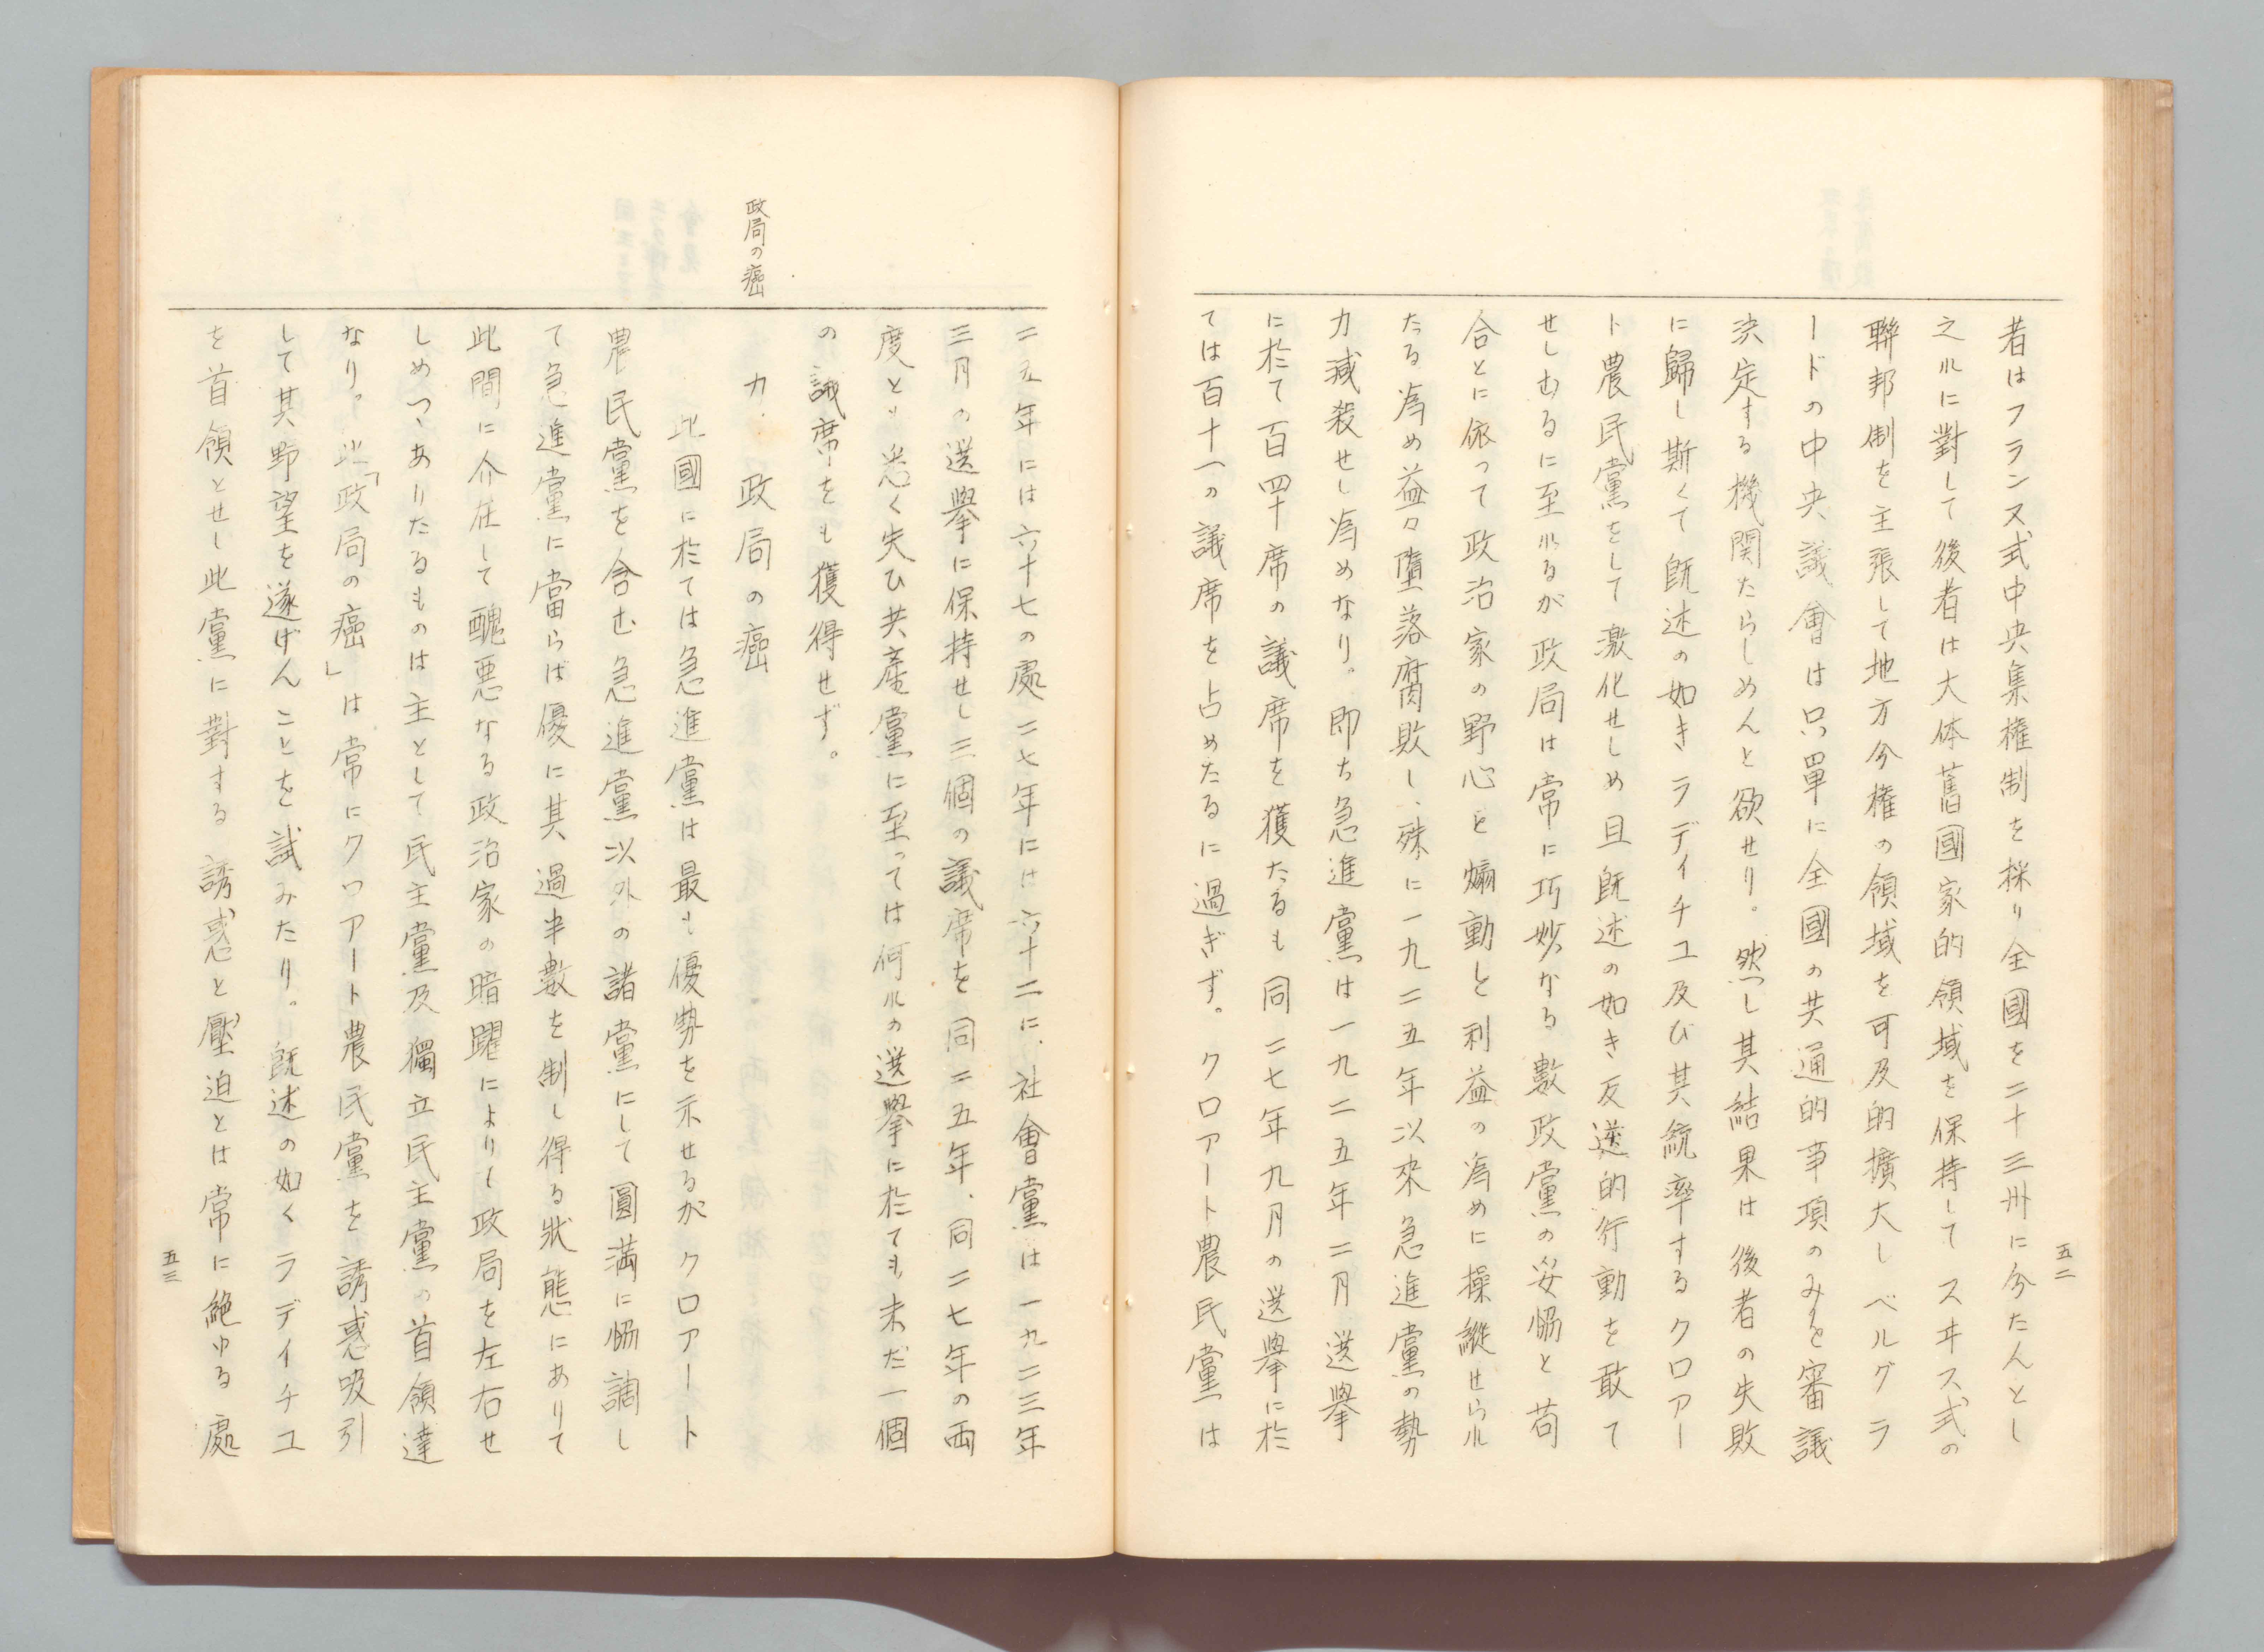 五二
者はフランス式中央集権制を採り全國を二十三州に分たんとし
之れに對して後者は大体舊國家的領域を保持してスヰス式の
聯邦制を主張して地方分権の領域を可及的擴大しベルグラ
ードの中央議會は只單に全國の共通的事項のみを審議
決定する機関たらしめんと欲せり。然し其結果は後者の失敗
に歸し斯くて既述の如きラディチユ及び其統率するクロアー
ト農民黨をして激化せしめ且既述の如き反逆的行動を敢て
せしむるに至れるが政局は常に巧妙なる數政黨の妥協と苟
合とに依って政治家の野心と煽動と利益の為めに操縦せられ
たる為め益々墮落腐敗し、殊に一九二五年以来急進黨の勢
力減殺せし為めなり。即ち急進黨は一九二五年二月選擧
に於て百四十席の議席を獲たるも同二七年九月の選擧に於
ては百十一の議席を占めたるに過ぎず。クロアート農民黨は
二五年には六十七の處二七年には六十二に、社會黨は一九二三年
三月の選擧に保持せし三個の議席を同二五年、同二七年の両
度とも悉く失ひ共産黨に至っては何れの選擧に於ても未だ一個
の議席をも獲得せず。
政局の癌
力、政局の癌
此國に於ては急進黨は最も優勢を示せるがクロアート
農民黨を含む急進黨以外の諸黨にして圓満に協調し
て急進黨に當らば優に其過半數を制し得る狀態にありて
此間に介在して醜悪なる政治家の暗躍によりし政局を左右せ
しめつゝありたるものは主として民主黨及獨立民主黨の首領達
なり。此「政局の癌」は常にクロアート農民黨を誘惑吸引
して其野望を遂げんことを試みたり。既述の如くラディチユ
を首領とせし此黨に對する誘惑と壓迫とは常に絶ゆる處
五三